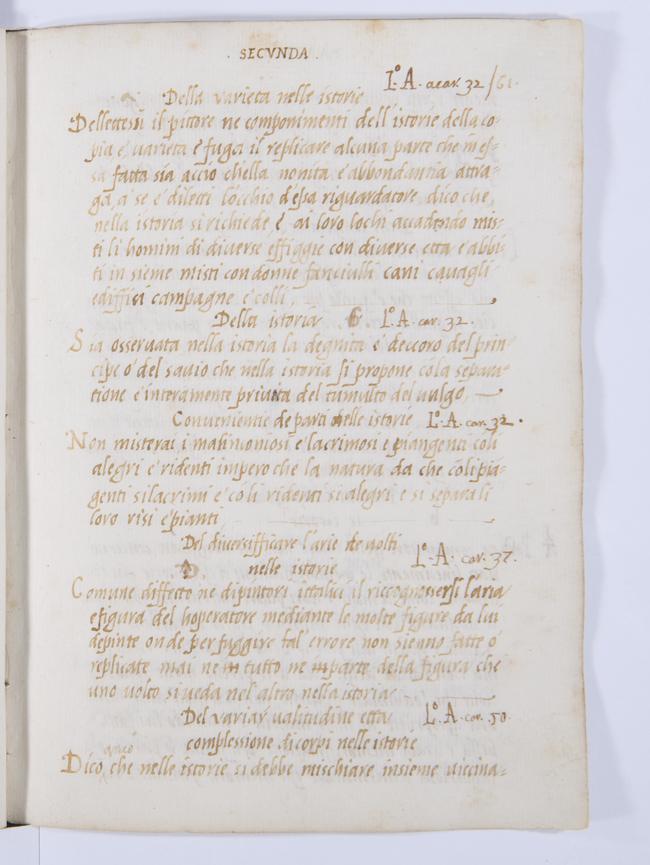 . SECVNDA .
L.º A. acar. 32 / 61.
Della varieta nelle istorie
Dellettessi il pittore ne componimenti dell'istorie della co=
pia e varieta e fuga il replicare alcuna parte che in es=
sa fatta sia accio chella novita e abbondantia attra=
ga, a se e diletti l'occhio d'essa riguardatore, dico che,
nella istoria si richiede e, ai loro lochi accadendo mis=
ti li homini di diverse effiggie con diverse etta e abbi=
ti in sieme misti con donne fanciulli cani cavagli
ediffisi campagne e colli,
Della istoria L.º A. car. 32.
Sia osservata nella istoria la degnita e deccoro del prin=
cipe o del savio che nella istoria si propone cola separa=
tione e interamente privata del tumulto del vulgo,
Convenientie de parti delle istorie L.º A. car. 32.
Non misterai i malinconiosi e lacrimosi e piangenti coli
alegri e ridenti impero che la natura da che coli pia=
genti si lacrimi e coli ridenti si alegri e si separa li
loro risi e pianti,
Del diversifficare l'arie de volti
nelle istorie L.º A. car. 37.
Comune diffecto ne dipintori ittalici il riccognossersi l'aria
e figura del hoperatore mediante le molte figure da lui
depinte onde per fuggire tal' errore non sienno fatte o
replicate mai ne in tutto ne in parte della figura che
uno volto si veda nel' altro nella istoria
Del variar valitudine etta L.º A. car. 50.
complessione di corpi nelle istorie
Dico, anco che nelle istorie si debbe mischiare insieme viccina=